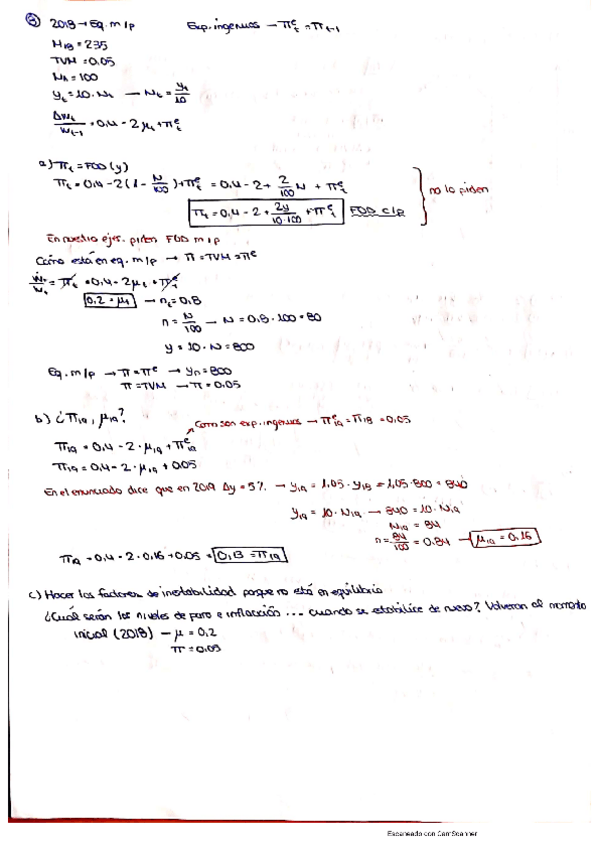 ③ 2018 → Eq. m/p    Exp. ingenuas → π^e_t = π_t-1
M_18 = 235
TVM = 0.05
N_A = 100
y_t = 10 · N_t → N_t = y_t/10
Δw_t/w_t-1 = 0,4 - 2μ_t + π^e_t
a) π_t = FOD (y)
π_t = 0,4 - 2(1 - N/100) + π^e_t = 0,4 - 2 + 2/100 N + π^e_t
π_t = 0,4 - 2 + 2y/10·100 + π^e_t  FOD c/p
no lo piden
En nuestro ejer. piden FOD m/p
Como está en eq. m/p → π = TVM = π^e
ẇ_t/w_t = π_t = 0,4 - 2μ_t + π^e_t
0,2 = μ_t → n_t = 0,8
n = N/100 → N = 0,8 · 100 = 80
y = 10 · N = 800
Eq. m/p → π = π^e → y_n = 800
π = TVM → π = 0.05
b) ¿π_19, μ_19?
Como son exp. ingenuas → π^e_19 = π_18 = 0,05
π_19 = 0,4 - 2 · μ_19 + π^e_19
π_19 = 0,4 - 2 · μ_19 + 0.05
En el enunciado dice que en 2019 Δy = 5% → y_19 = 1,05 · y_18 = 1,05 · 800 = 840
y_19 = 10 · N_19 → 840 = 10 · N_19
N_19 = 84
n = 84/100 = 0.84 → μ_19 = 0,16
π_19 = 0,4 - 2 · 0,16 + 0,05 = 0,13 = π_19
c) Hacer los factores de inestabilidad porque no está en equilibrio
¿Cuál serán los niveles de paro e inflacción ... cuando se estabilice de nuevo? Volverán al momento
inicial (2018) → μ = 0,2
π = 0.05
Escaneado con CamScanner